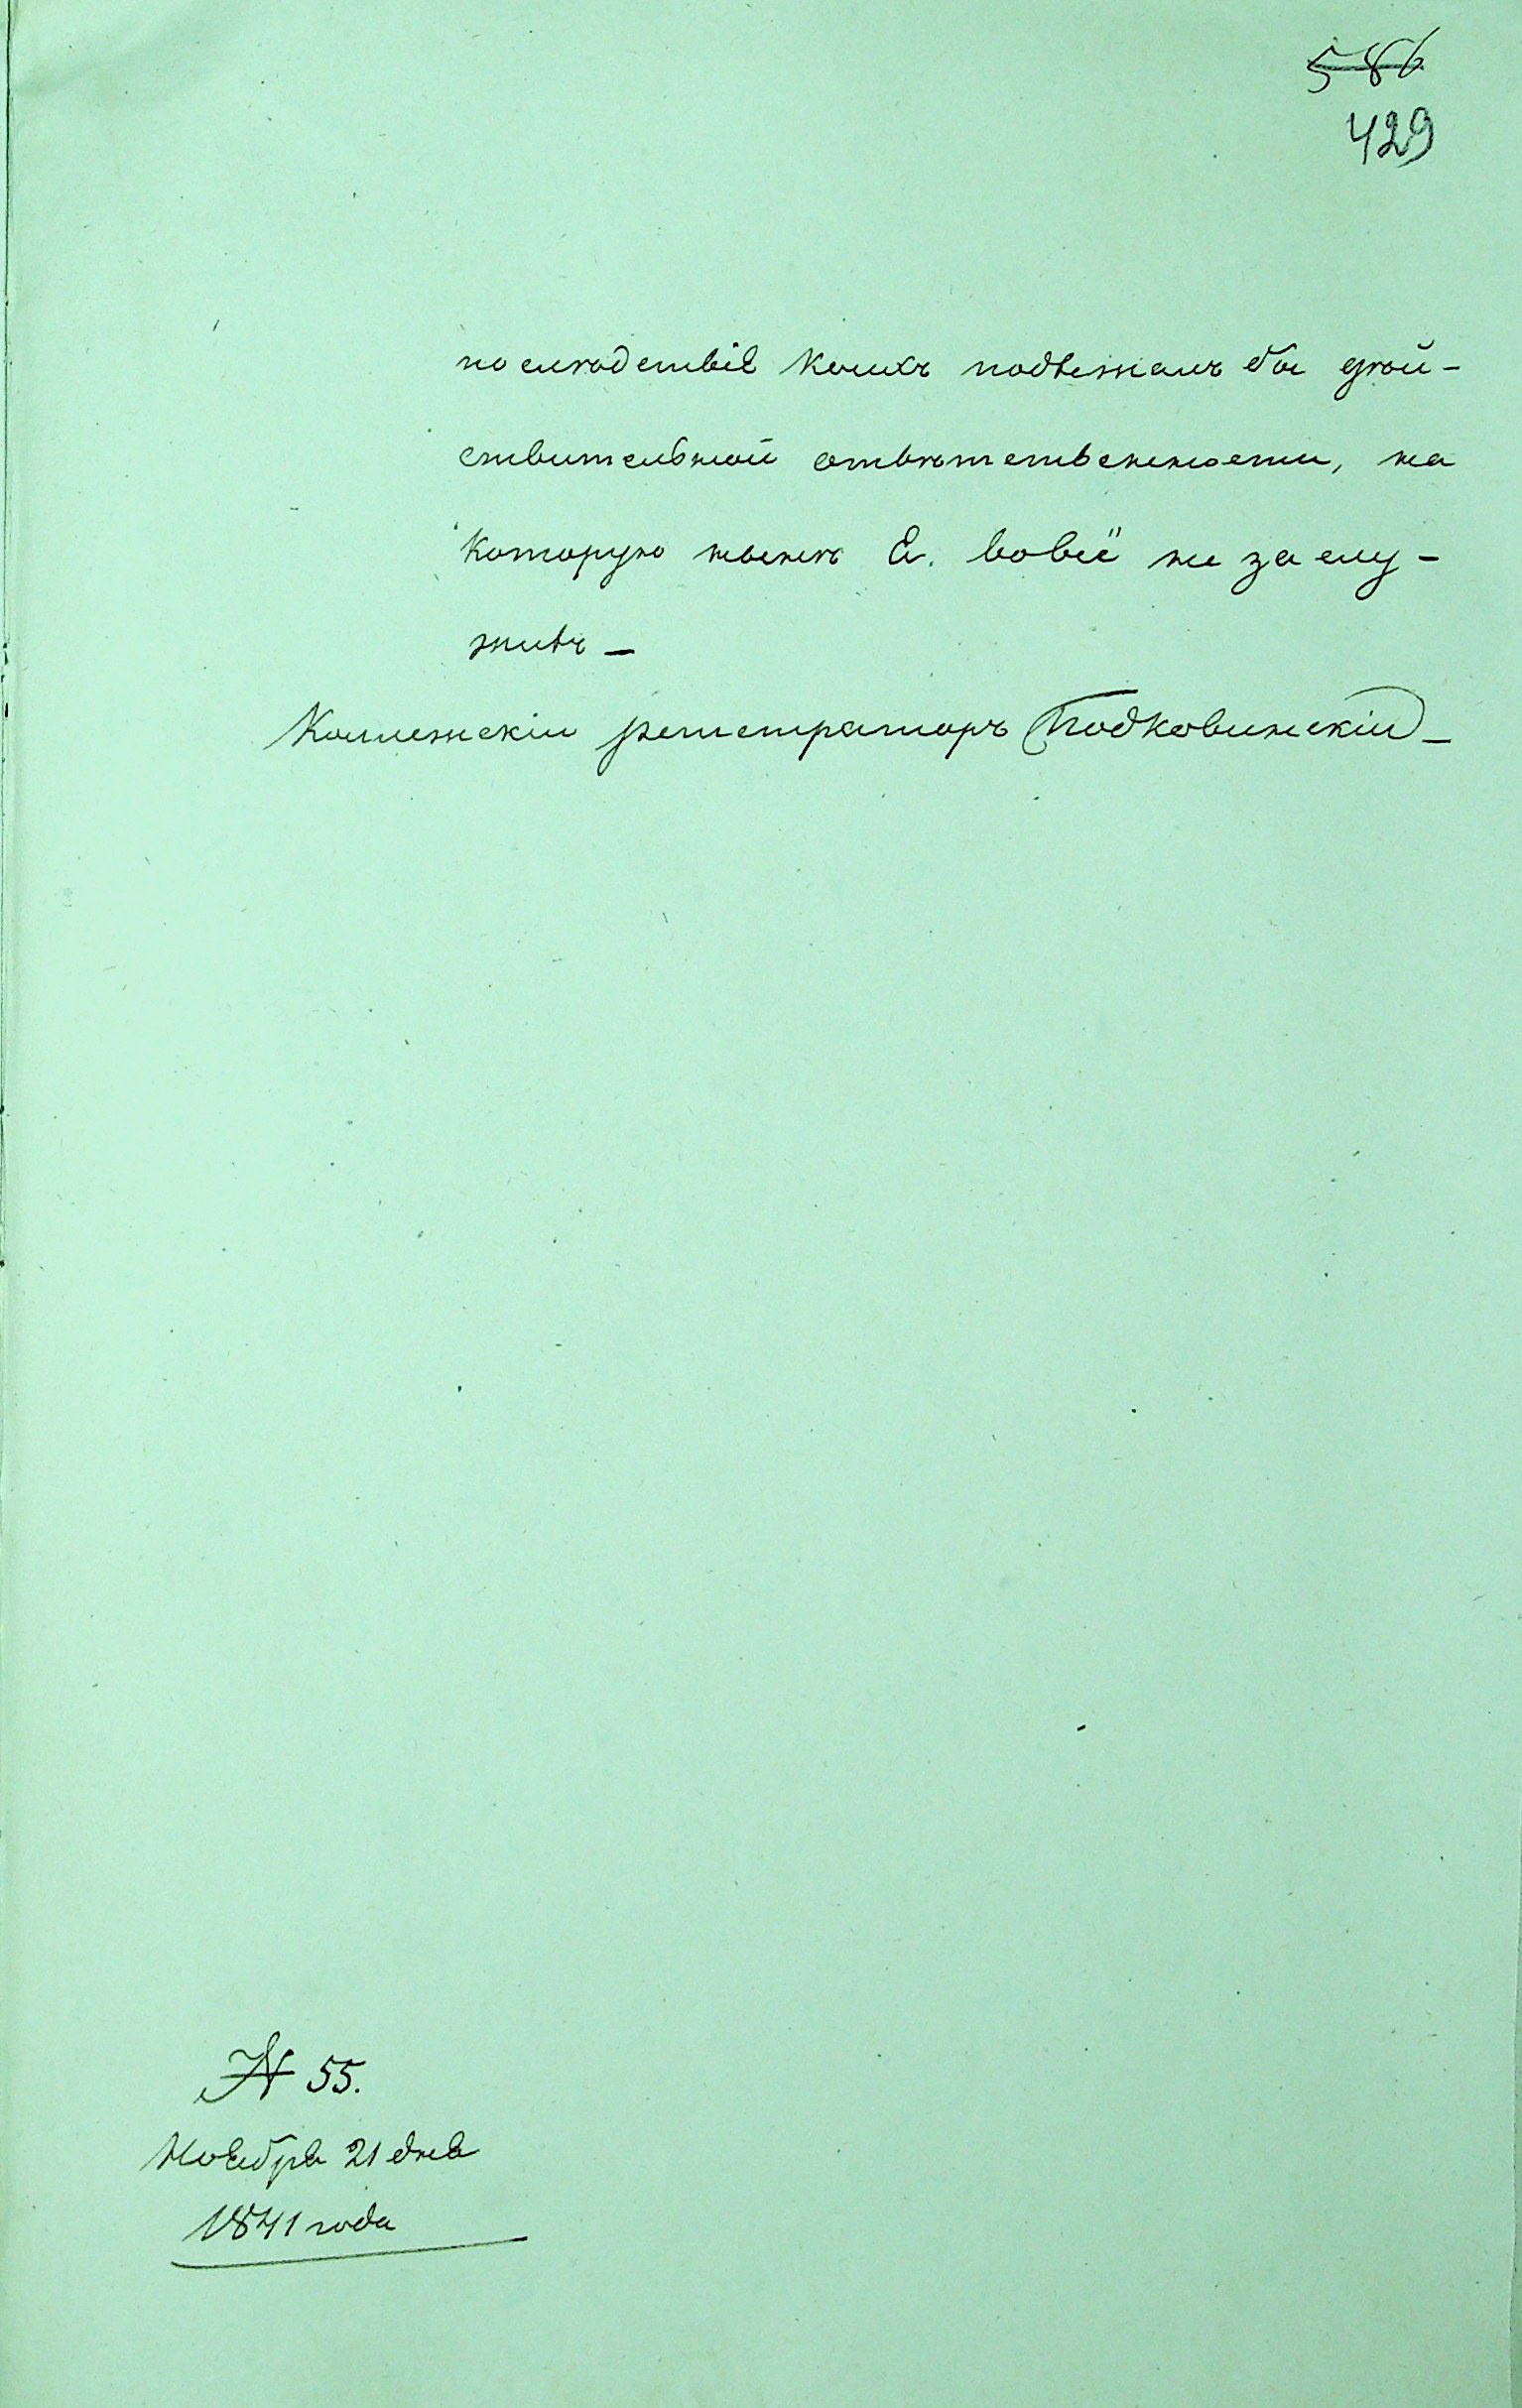 586
429
по слѣдствіѣ коихъ подвежалъ бы дѣй-
ствительной отвѣтственности, на
которую нынѣ Я. вовсё не заслу-
живъ –
Коллежскій регистраторъ Подковинскій –
№ 55.
Ноября 21 дня
1841 года